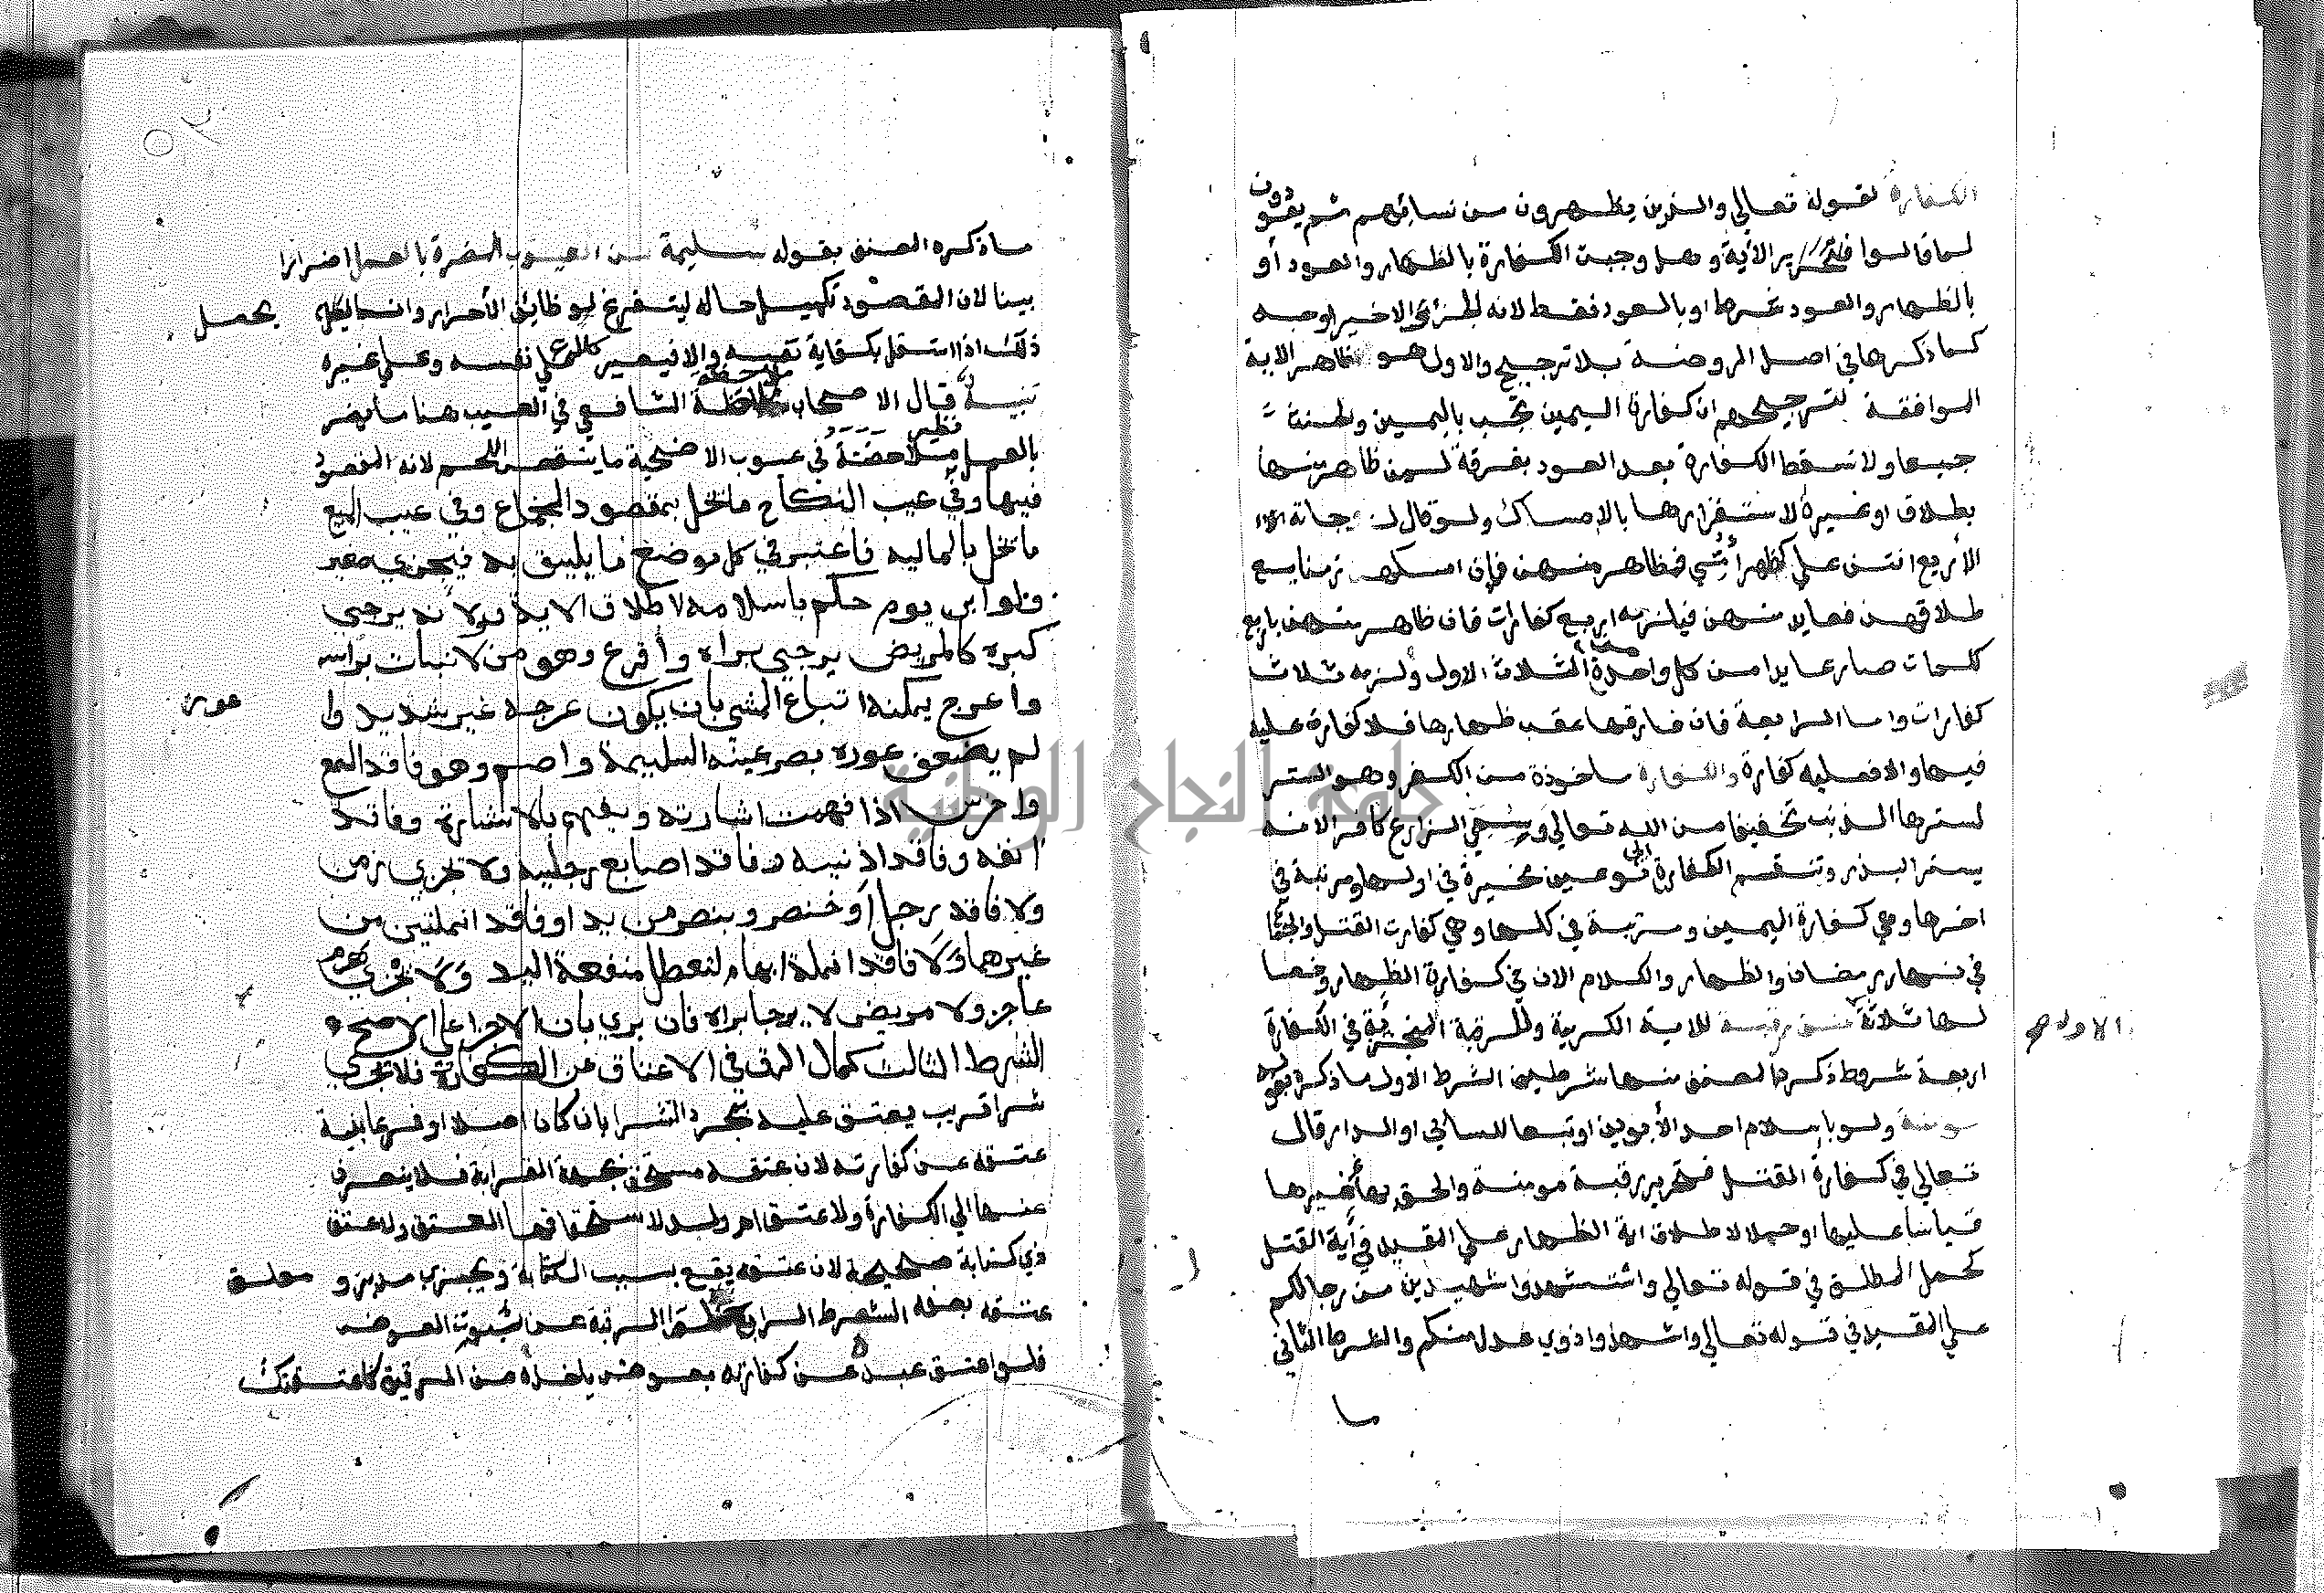 الكفارة لقوله تعالي والذين يظهرون من نسائهم ثم يعودون
لما قالوا فتحرير الأية وهل وجبت الكفارة بالظهار والعود أو
بالظهار والعود شرط او بالعود فقط لانه الجزئ الاخير اوجه
كما ذكرها في اصل الروضة بلا ترجيح والاول هو ظاهر الاية
الموافقة لترجيحهم ان كفارة اليمين تجب باليمين والحنث
جميعا ولا تسقط الكفارة بعد العود بفرقة لمن ظاهر منها
بطلاق او غيره لاستقرارها بالامساك ولو قال لزوجاته
الأربع انتن علي كظهر أمي فظاهر منهن فإن امسكهن زمنا يسع
طلاقهن فعايد منهن فيلزمه اربع كفارات فان ظاهر منهن باربع
كلمات صار عايدا من كل واحدة من الثلاث الاول ولزمه ثلاث
كفارات واما الرابعة فان فارقها عقب ظهارها فلا كفارة عليه
فيها والا فعليه كفارة والكفارة ماخوذة من الكفر وهو الستر
لسترها الذنب تخفيفا من الله تعالي وسمي الزارع كافرا لانه
يستر البذر وتنقسم الكفارة الى نوعين مخيرة في اولها ومرتبة في
اخرها وهي كفارة اليمين ومرتبة في كلها وهي كفارت القتل والجماع
في نهار رمضان والظهار والكلام الان في كفارة الظهار وخصا
لها ثلاثة عتق رقبة للاية الكريمة وللرقبة المجزئة في الكفارة
الاولي
اربعة شروط ذكر المصنف منها شرطين الشرط الأول ما ذكره بقوله
مومنة ولو بإسلام احد الأبوين او تبعا للسابي او الدار قال
تعالي في كفارة القتل فتحرير رقبة مومنة والحق بها غيرها
قياسا عليها او حملا لاطلاق اية الظهار علي المقيد في أية القتل
كحمل المطلق في قوله تعالي واستشهدوا شهيدين من رجالكم
علي المقيد في قوله تعالي واشهدوا ذوي عدل منكم والشرط الثاني
ما
ما ذكره المصنف بقوله سليمة من العيوب المضرة بالعمل اضرارا
بينا لان المقصود تكميل حاله ليتفرغ لوظائف الأحرار وانما يحصل
ذلك اذا استقل بكفاية نفسه والا فيصير كلا علي نفسه وعلي غيره
تنبيه قال الاصحاب ملاحظة الشافعي في العيب هنا ما يضر
بالعمل نظير ملاحظته في عيوب الاضحية ما ينقص اللحم لانه المقصود
فيها وفي عيب النكاح ما يخل بمقصود الجماع وفي عيب المبيع
ما يخل بالماليه فاعتبر في كل موضع ما يليق به فيجزي صغير
ولو ابن يوم حكم باسلامه لاطلاق الاية ولانه يرجي
كبره كالمريض يرجي براه وأقرع وهو من لا نبات براسه
واعرج يمكنه اتباع المشي بان يكون عرجه غير شديد وا
عور
لم يضعف عوره بصر عينه السليمة واصم وهو فاقد السمع
واخرس اذا فهمت اشارته ويفهم بالاشارة وفاقد
انفه وفاقد اذنيه وفاقد اصابع رجليه ولا تجزي زمن
ولا فاقد رجل أو خنصر وبنصر من يد او فاقد انملتين من
غيرهما ولا فاقد انملة ابهام لتعطل منفعة اليد ولا تجزي هرم
عاجز ولا مريض لا يرجا براه فان بري بان الاجزا علي الاصح
الشرط الثالث كمال الرق في الاعتاق عن الكفارة فلا تجزي
شرا قريب يعتق عليه بمجرد الشرا بان كان اصلا او فرعا بنية
عتقه عن كفارته لان عتقه مستحق بجهة القرابة فلا ينصرف
عنها الي الكفارة ولا عتق ام ولد لاستحقاقها العتق ولا عتق
ذي كتابة صحيحة لان عتقه يقع بسبب الكتابة ويجزي مدبر و معلق
عتقه بصفه الشرط الرابع خلو الرقبة عن شوب العوض
فلو اعتق عبده عن كفارته بعوض ياخذه من الرقيق كاعتقتك